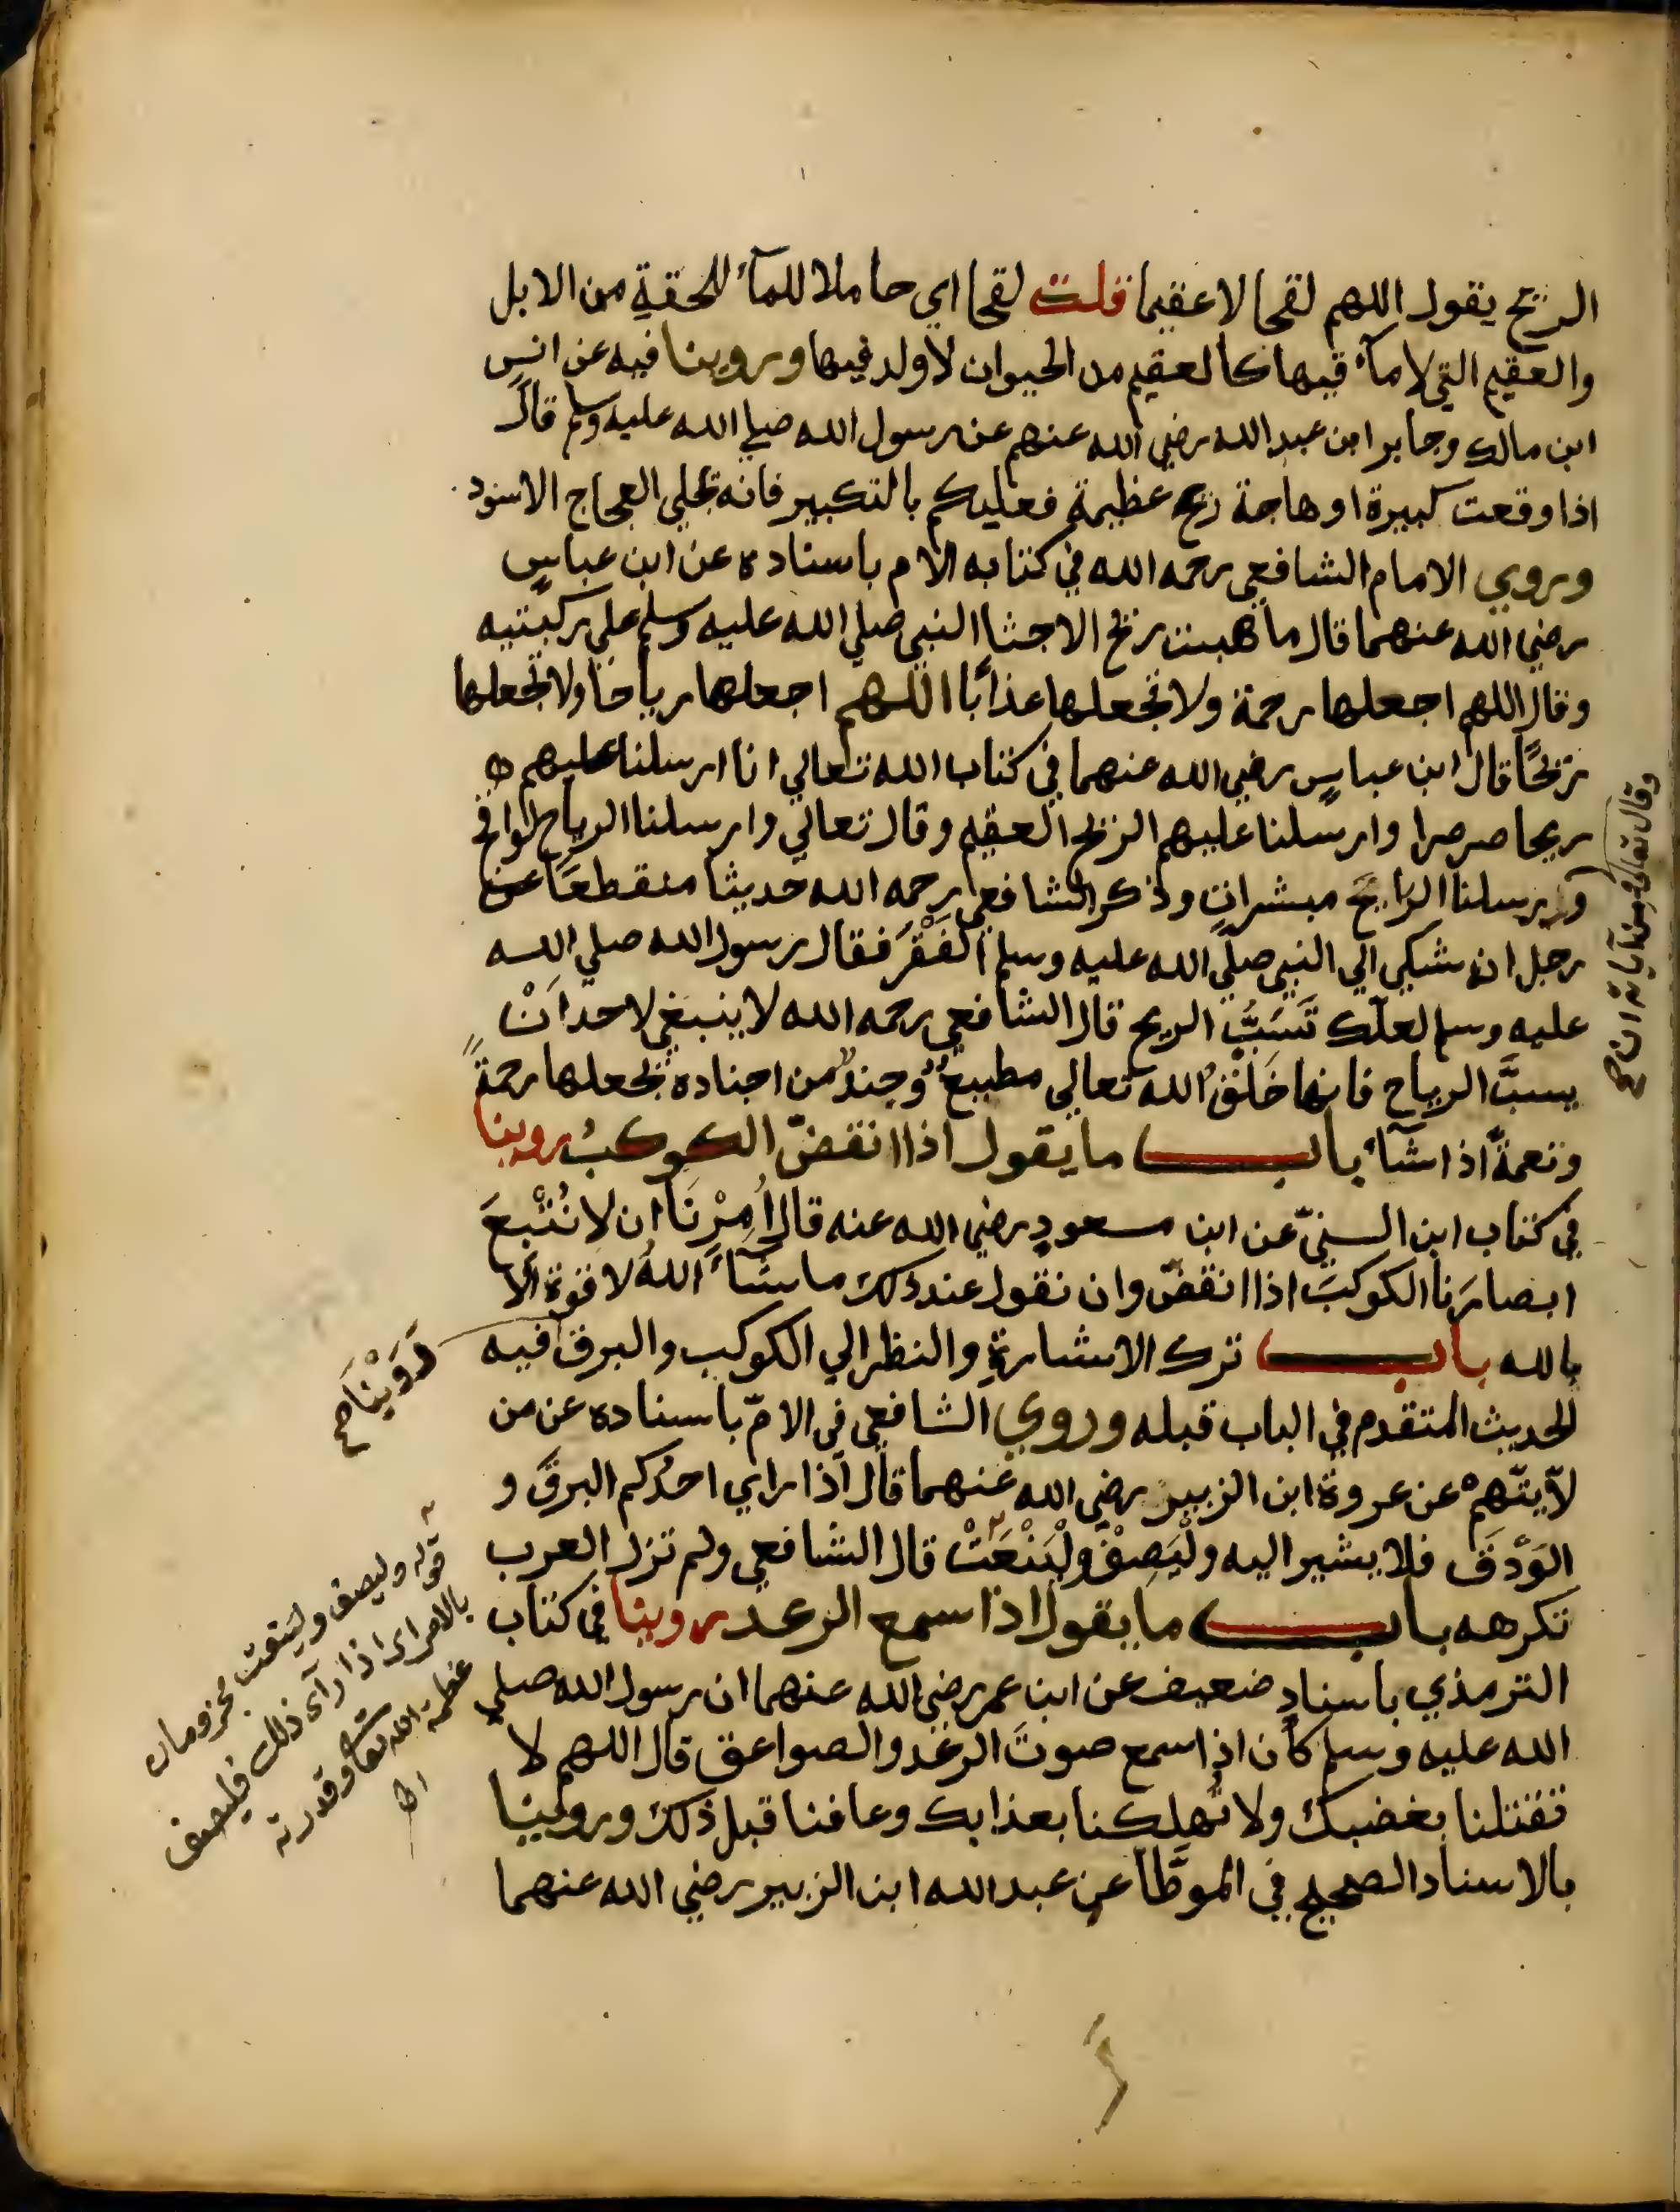 الريح يقول اللهم لقحا لا عقيما قلت لقحا اي حاملا للمآء كاللقحة من الابل
والعقيم التي لا مآء فيها كالعقيم من الحيوان لا ولد فيها وروينا فيه عن انس
ابن مالك وجابر ابن عبد الله رضي الله عنهم عن رسول الله صلي الله عليه وسلم قال
اذا وقعت كبيرة او هاجة ريح عظيمة فعليكم بالتكبير فانه يجلي العجاج الاسود
وروي الامام الشافعي رحمه الله في كتابه الام باسناده عن ابن عباس
رضي الله عنهما قال ما هبت ريح الا جثا النبي صلي الله عليه وسلم علي ركبتيه
وقال اللهم اجعلها رحمة ولا تجعلها عذابًا اللهم اجعلها رياحًا ولا تجعلها
ريحًا قال ابن عباسٍ رضي الله عنهما في كتاب الله تعالي انا ارسلنا عليهم
ريحا صرصرا وارسلنا عليهم الريح العقيم وقال تعالي وارسلنا الرياح لواقح
وارسلنا الرايح مبشراتٍ وذكر الشافعي رحمه الله حديثا منقطعًا عن
رجل انه شكي الي النبي صلي الله عليه وسلم الفَقْرَ فقال رسول الله صلي الله
عليه وسلم لعلك تَسُبُّ الريح قال الشافعي رحمه الله لا ينبغي لاحد اَنْ
يسبَّ الرياح فانها خَلْقُ الله تعالي مطيع وجندٌ من اجناده يجعلها رحمةً
ونعمةً اذا شآء باب ما يقول اذا انقضّ الكوكبُ روينا
في كتاب ابن السنيّ عن ابن مسعودٍ رضي الله عنه قال اُمِرْنَا ان لا نُتْبِعَ
ابصارَنا الكوكبَ اذا انقضّ وان نقول عند ذلك ما شآءَ اللهُ لا قوة الّا
بالله باب ترك الاشارةِ والنظر الي الكوكب والبرق فيه
الحديث المتقدم في الباب قبله وروي الشافعي في الامّ باسناده عن من
لا يتّهم عن عروة ابن الزبير رضي الله عنهما قال اذا راي احدُكم البرقَ و
الوَدْقَ فلا يشير اليه ولْيَصِفْ ولْيَنْعَتْ قال الشافعي ولم تزل العرب
تكرهه باب ما يقول اذا سمع الرعد روينا في كتاب
الترمذي باسنادٍ ضعيف عن ابن عمر رضي الله عنهما ان رسول الله صلي
الله عليه وسلم كان اذا سمع صوتَ الرعد والصواعق قال اللهم لا
تقتلنا بغضبك ولا تُهلكنا بعذابك وعافنا قبل ذلك وروينا
بالاسناد الصحيح في الموطَّأ عن عبد الله ابن الزبير رضي الله عنهما
وقال تعالى ومن آياته ان صح
رَوَيْنَا صح
قوله وليصف ولينعت مجزومان
بالامر اى اذا رآى ذلك فليصف
عظمة الله تعا وقدرته